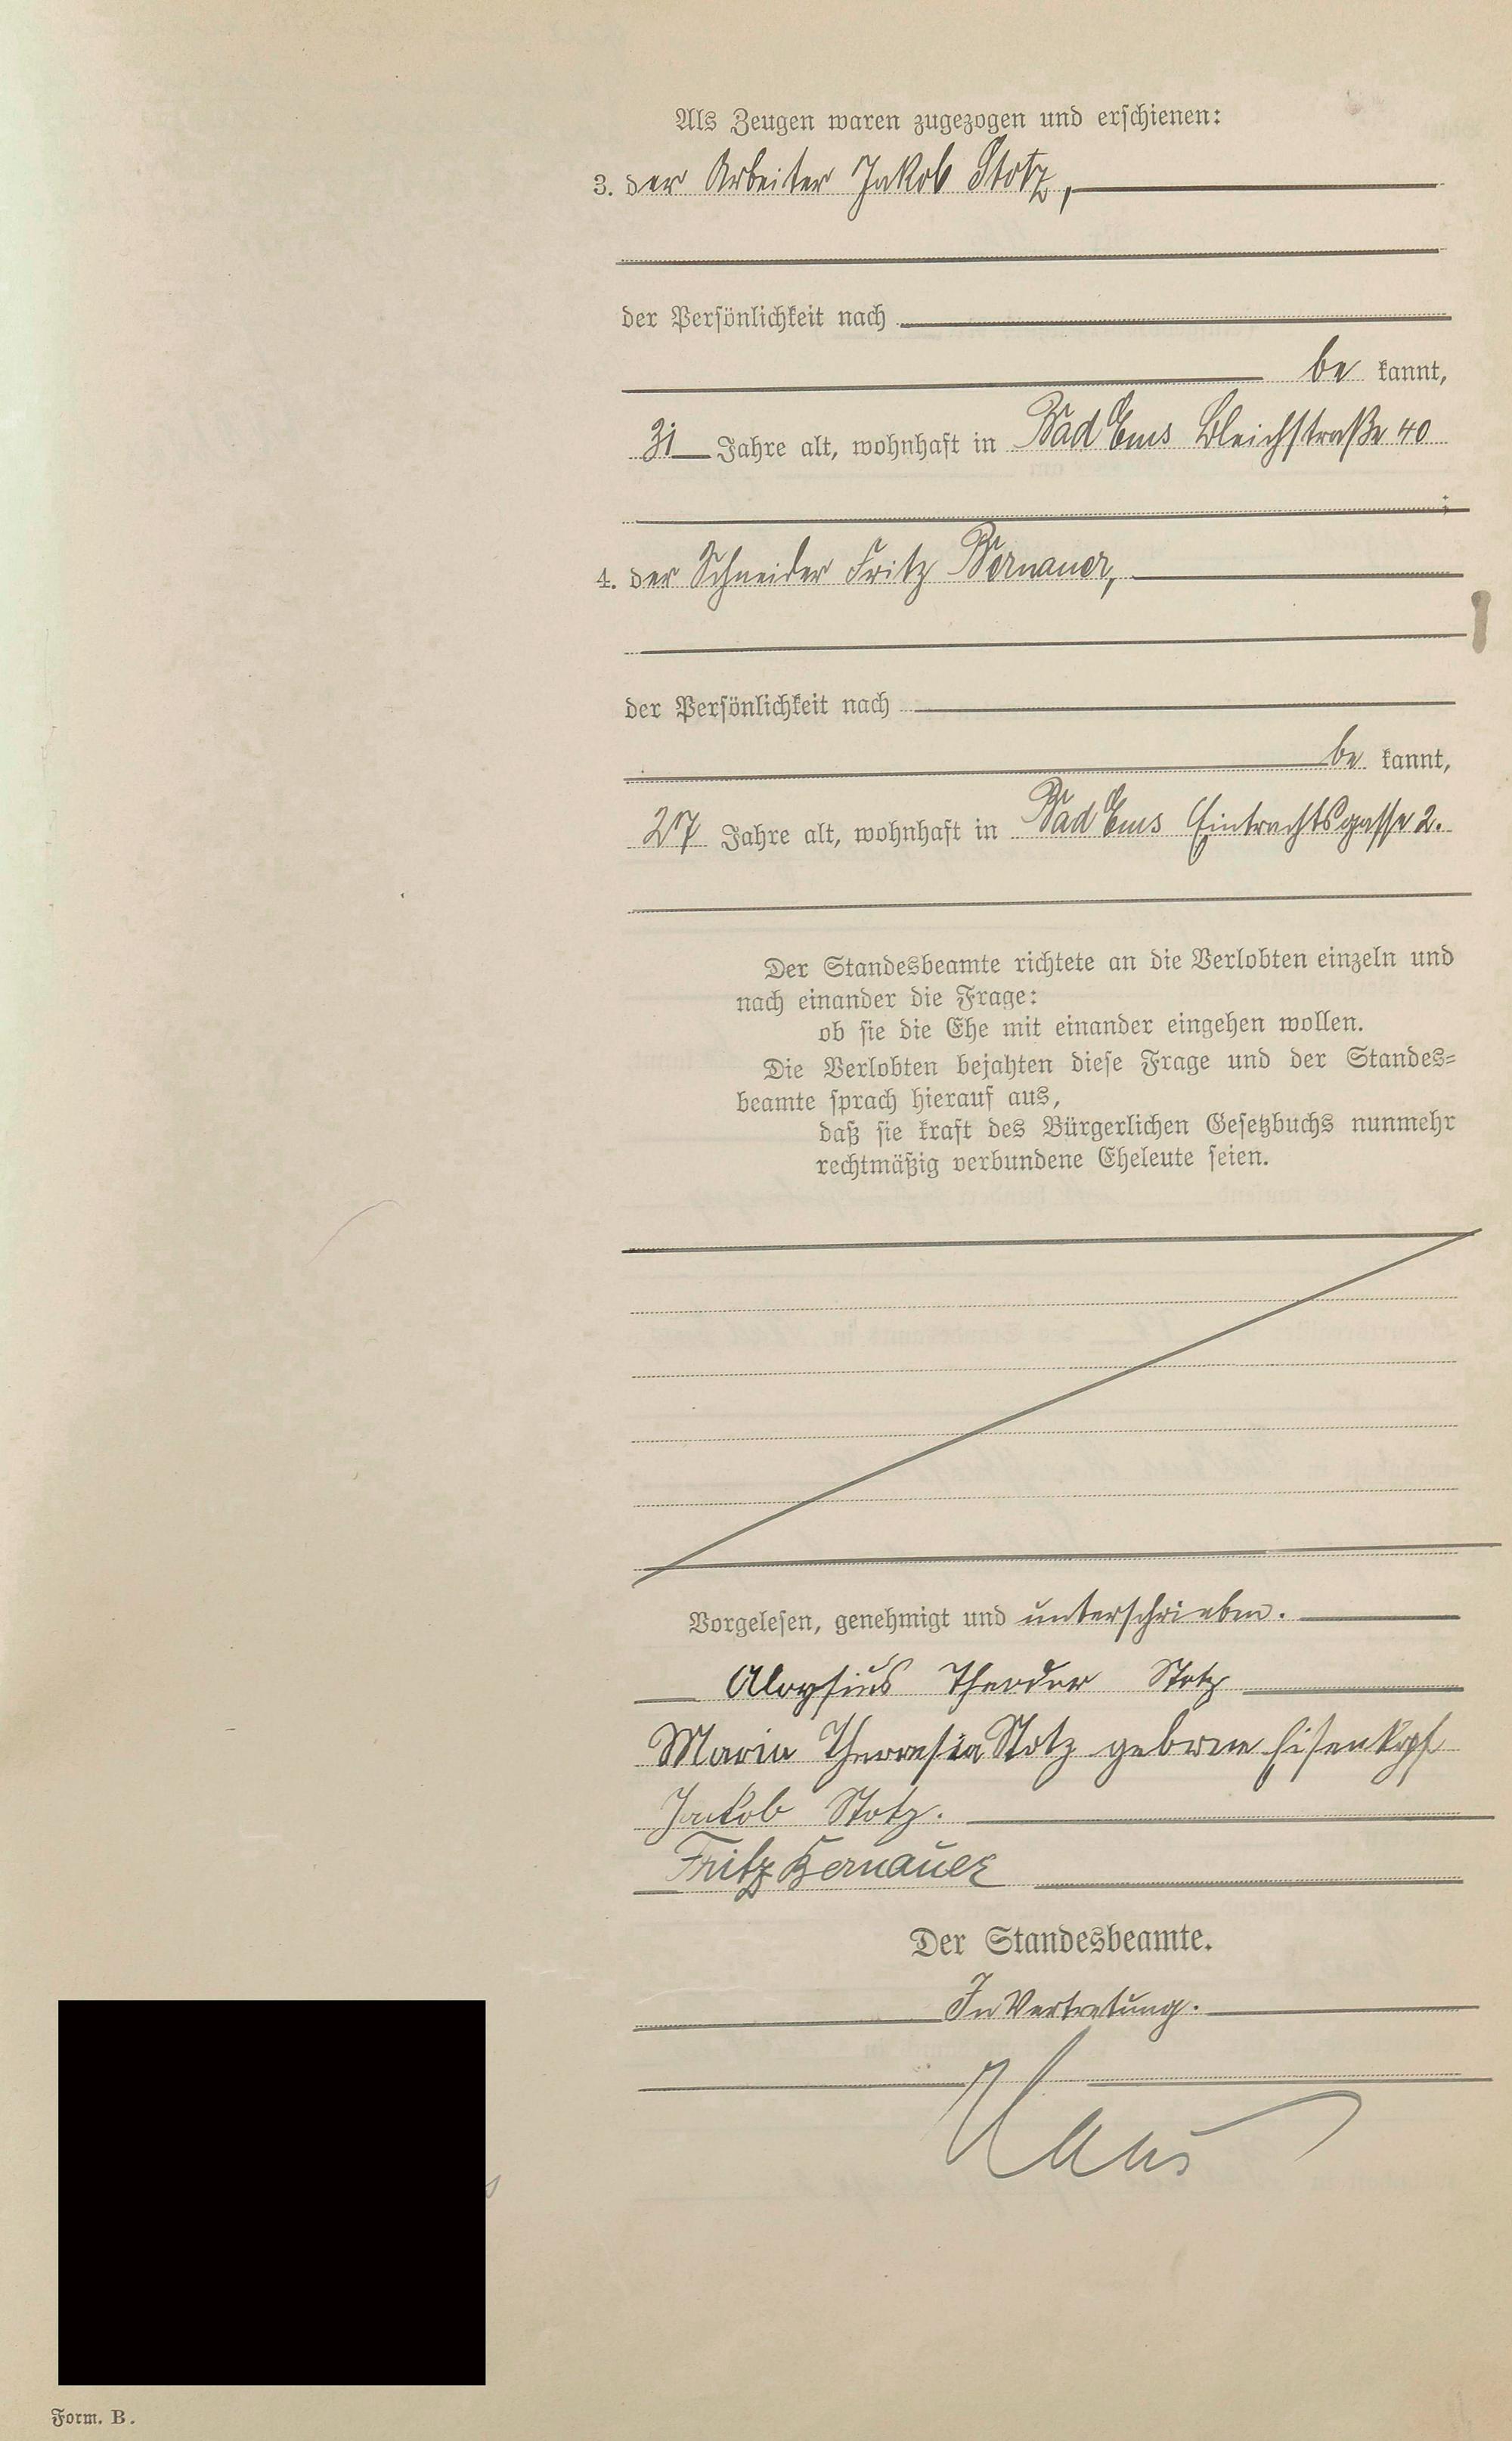 Als Zeugen waren zugezogen und erschienen:
3. der Arbeiter Jakob Stotz,
der Persönlichkeit nach
be kannt,
31 Jahre alt, wohnhaft in Bad Ems Bleichstraße 40
;
4. der Schneider Fritz Bernauer,
der Persönlichkeit nach
be kannt,
27 Jahre alt, wohnhaft in Bad Ems Eintrachtsgasse 2.
Der Standesbeamte richtete an die Verlobten einzeln und
nach einander die Frage:
ob sie die Ehe mit einander eingehen wollen.
Die Verlobten bejahten diese Frage und der Standes=
beamte sprach hierauf aus,
daß sie kraft des Bürgerlichen Gesetzbuchs nunmehr
rechtmäßig verbundene Eheleute seien.
Vorgelesen, genehmigt und unterschrieben.
Aloysius Theodor Stotz
Maria Theresia Stotz geborne Eisenkopf
Jakob Stotz.
Fritz Bernauer
Der Standesbeamte.
In Vertretung.
Form. B.